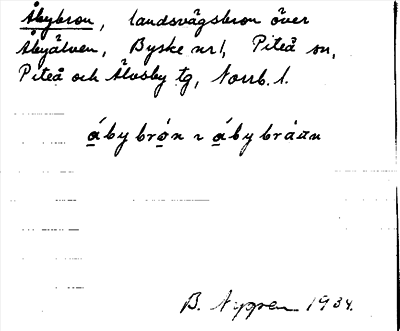 Åbybron, landsvägsbron över
Åbyälven, Byske nr 1, Piteå sn,
Piteå och Älvsby tg, Norrb. l.
áby brón ~ áby bråan
B. Nygren 1934.